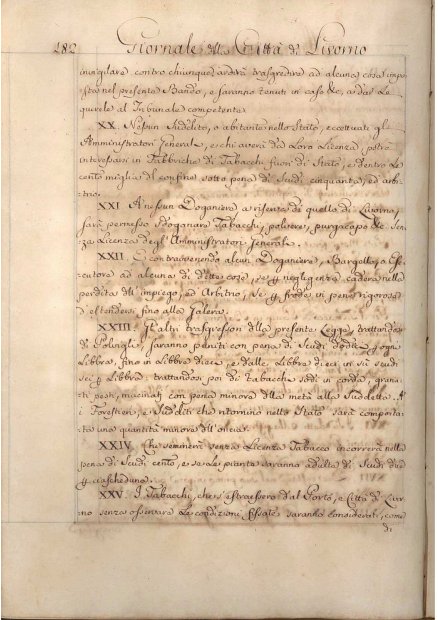 182 Giornale della Città di Livorno
invigilare contro chiunque ardirà trasgredire ad alcuna cosa impo-
sta nel presente Bando, e saranno tenuti in caso di dar le
querele al Tribunale competente
XX. Nessun Suddito, o abitante nello Stato, eccettuati gli
Amministratori Generali, e chi averà da Loro Licenza, potrà
interessarsi in Fabbriche di Tabacchi fuori di Stato, e dentro Le
cento miglia dal confine sotto pena di Scudi cinquanta, ed arbi-
trio.
XXI A nessun Doganiere a riserva di quello di Livorno,
sarà permesso sdoganare Tabacchi, polvere, purgicapo sen-
za Licenza degl'Amministratori Generali.
XXII. E contravvenendo alcun Doganiere, Bargello, o Ese-
cutore ad alcuna di dette cose, se p negligenza caderà nella
perdita dell'impiego, ed Arbitrio, se p frode in pena rigorosa
d'estendersi fino alla Galera.
XXIII. Gl'altri trasgressori della presente Legge, trattandosi
di Polvigli, saranno puniti con pena di Scudi dodici p ogni
Libbra, fino in Libbre dieci, e dalle Libbre dieci in su scudi
sei p Libbra: trattandosi poi di Tabacchi sodi in corda, grana-
ti pesti, macinati con pena minore della metà alla Suddetta. A
i Forestieri, e Sudditi che ritornino nello Stato sarà comporta-
ta una quantità minore dell'onciar.
XXIV Chi seminerà senza Licenza Tabacco incorrerà nella
pena di Scudi cento, e se le piante saranno adulte di Scudi due
p ciascheduna.
XXV. I Tabacchi, che s'estraessero dal Porto, e Città di Livor-
no senza osservare Le condizioni fissate saranno considerati, come
di